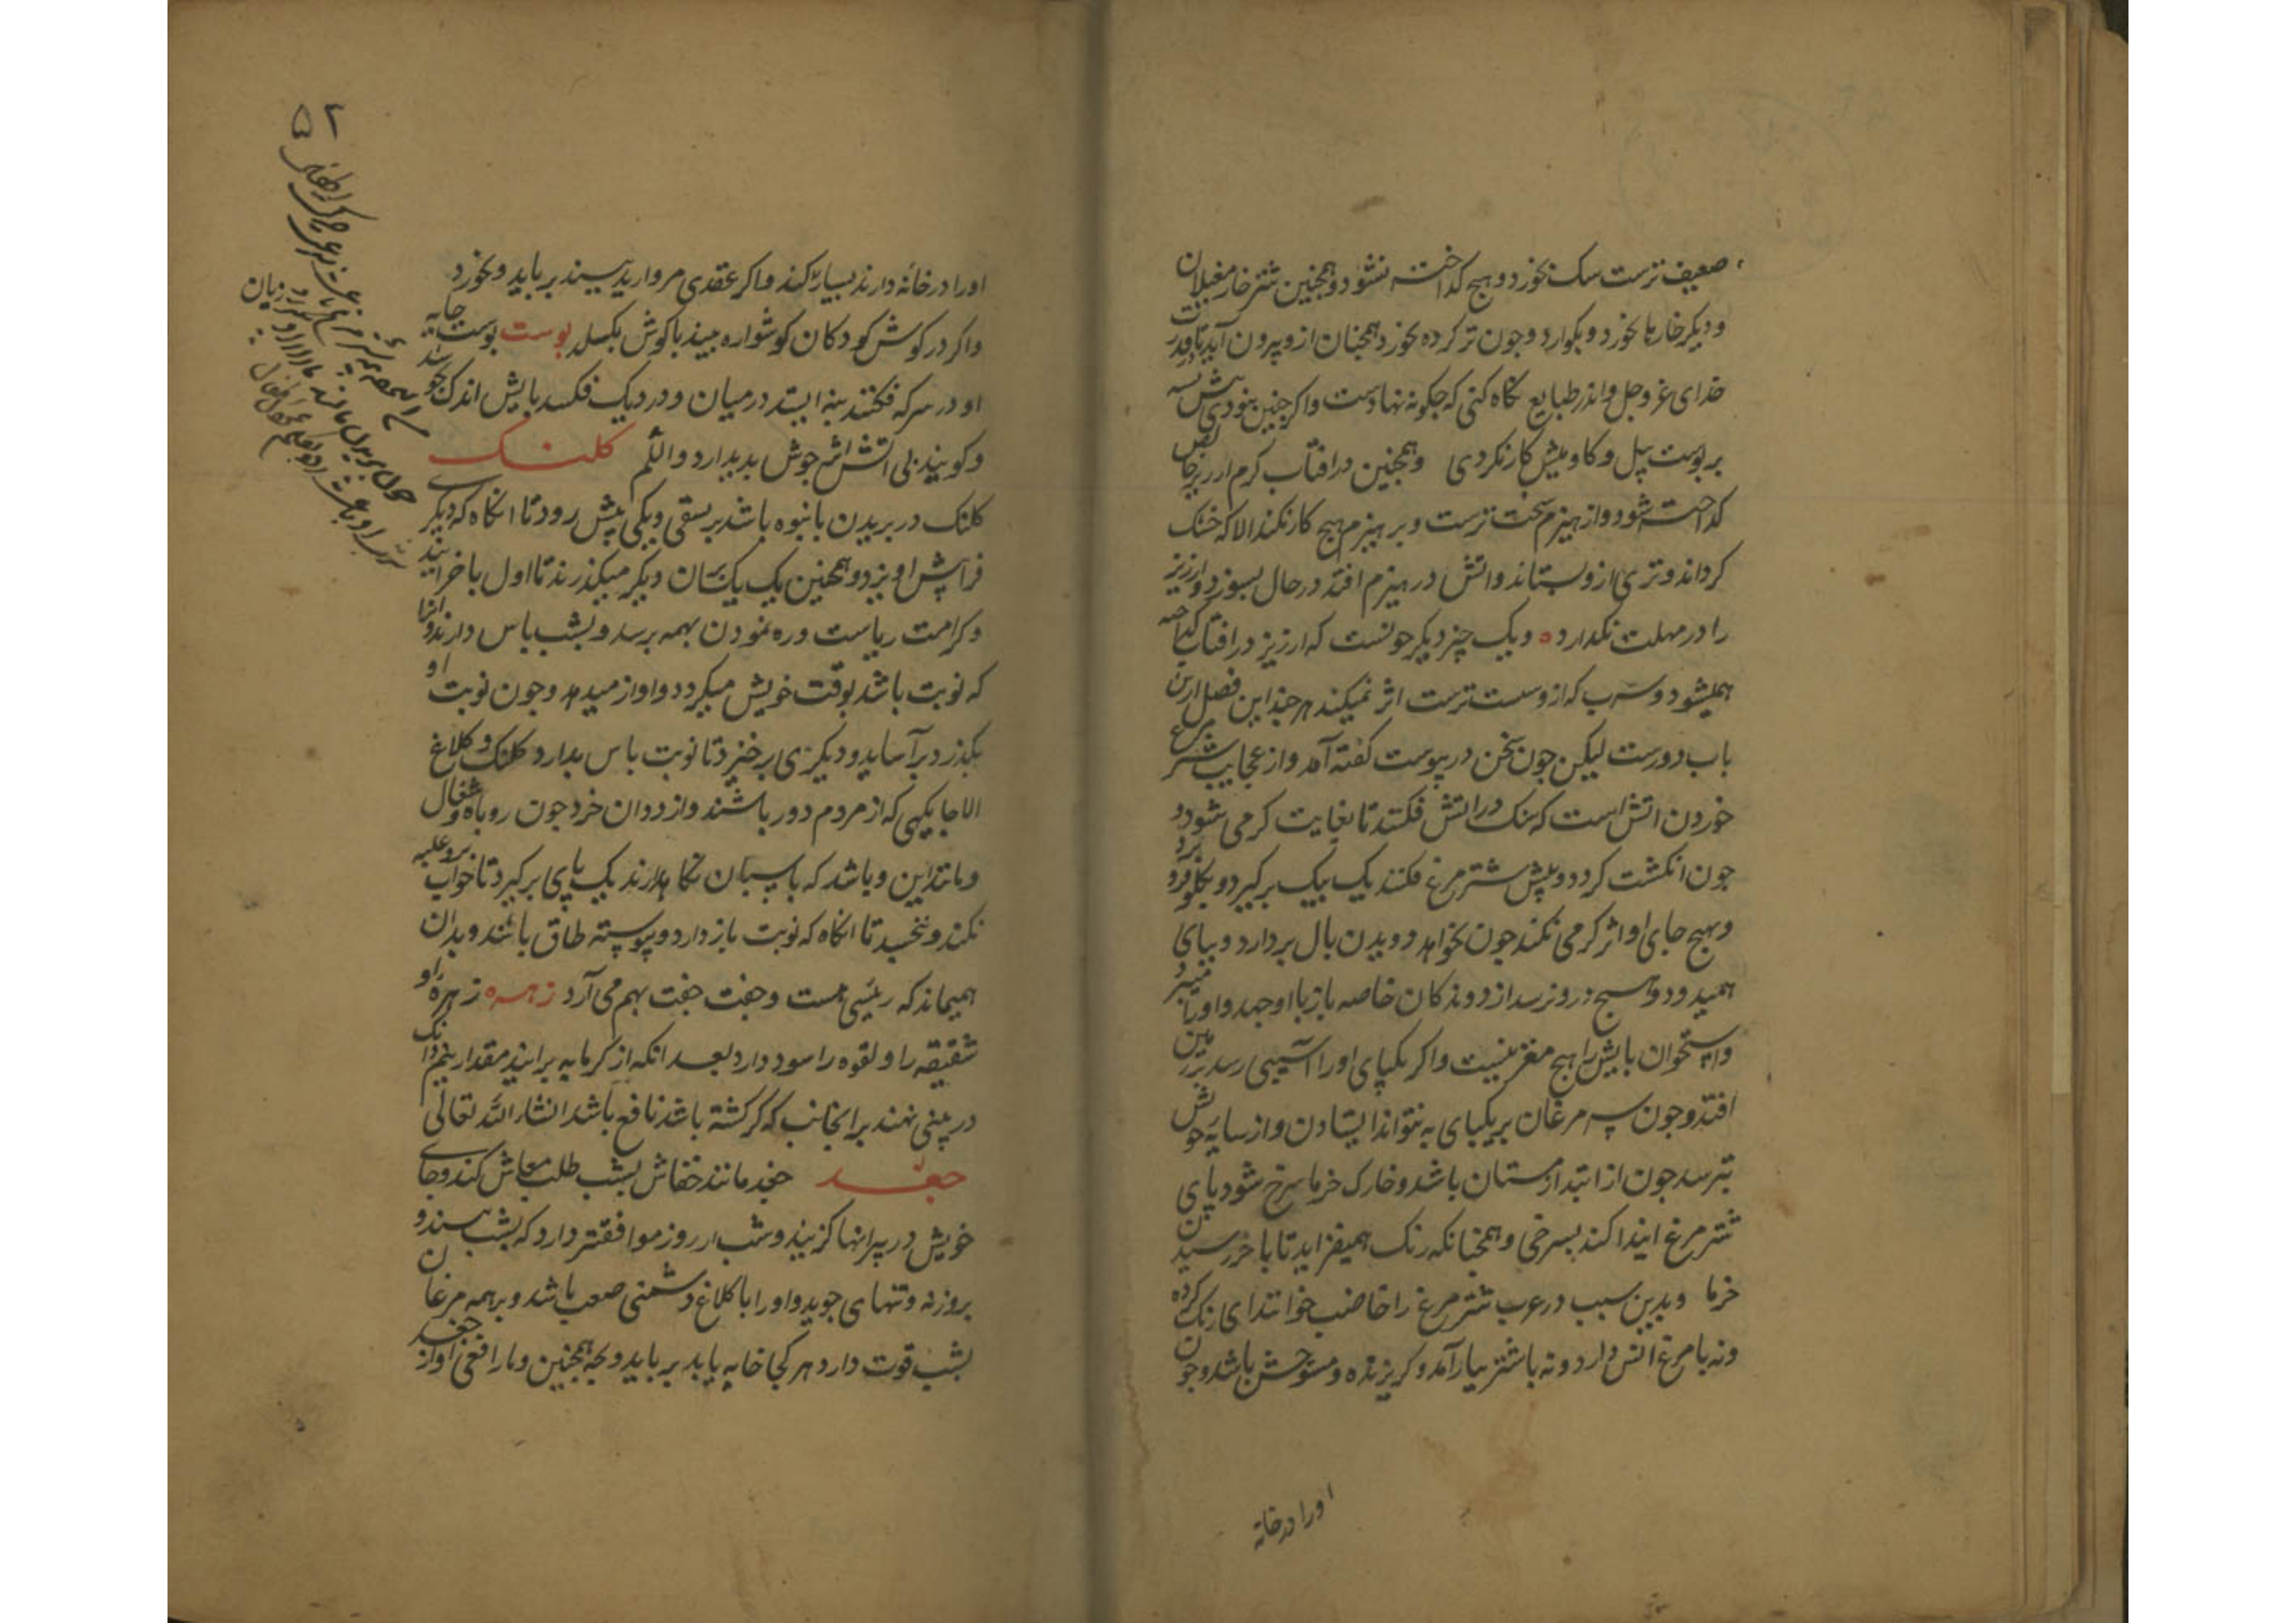 ضعیف ترست سک بخورد و هیچ کداخته نشود و همچنین شتر خار مغیلان
و دیکر خارها بخورد و بکوارد و جون تر کرده بخورد همچنان ازو بیرون آید تا قدرت
خدای عز و جل و اندر طبایع نکاه کنی که جکونه نهادست و اکر جنین نبودی
بر پوست پیل و کاومیش کار نکردی و همچنین در افتاب کرم ارزیز
کداخته شود و از هیزم سخت ترست و بر هیزم هیچ کار نکند الا که خشک
کرداند و تری ازو بستاند و اتش در هیزم افتد در حال بسوزد و ارزیز
را در مهلت نکدارد ه و یک چیز دیکر جونست که ارزیز در افتاب کداخته
همیشود و سرب که ازو سست ترست اثر نمیکند هر جند این فصل ازین
باب دورست لیکن جون سخن در پیوست کفته آمد و از عجایب شترمرغ
خوردن اتش است که سنک در اتش فکنند تا بغایت کرمی شود و
جون انکشت کردد و پیش شتر مرغ فکنند یک یک برکیرد و بکلو فرو برد
و بهیج جای او اثر کرمی نکند جون بخواهد دویدن بال بردارد و بپای
همیدود و هیچ درو نرسد از دوندکان خاصه باز با او جهد و او را
و استخوان پایش را هیچ مغز نیست و اکر یکپای او را آسیبی رسد بر زمین
افتد و جون سه مرغان بر یکپای به نتواند ایستادن و از سایه خویش
بترسد جون از ابتدا زمستان باشد و خارک خرما سرخ شود پای
شتر مرغ ابتدا کند بسرخی و همچنانکه رنک همیفزاید تا باخر رسیدن
خرما و بدین سبب در عرب شتر مرغ را خاضب خوانند ای رنک کرده
و نه با مرغ انس دارد و نه با شتر بیارآمد و کریزنده و مستوحش باشد و جون
اورا درخانه
۵۲
اورا در خانه دارند بسیار کند و اکر عقدی مروارید بیند برباید و بخورد
و اکر در کوش کودکان کوشواره بیند با کوش بکسلد پوست پوست خایه
او در سرکه فکنند بنه ایستد در میان و در دیک فکند پایش اندک بجوشد
و کویند بی اتش اثر جوش بدیدارد والله اعلم کلنک
کلنک در پریدن بانبوه باشد بر نسقی و یکی پیش رود تا انکاه که دیکر
فرا پیش او پرد و همچنین یک یک بر سان دیکر میکذرند تا اول باخر ایند
و کرامت ریاست و ره نمودن بهمه برسد و بشب پاس دارند و انرا
که نوبت باشد بوقت خویش میکردد و اواز میدهد و جون نوبت او
بکذرد برآساید و دیکری برخیزد تا نوبت پاس بدارد کلنک و کلاغ
الا جایکهی که از مردم دور باشند و از ددان خرد جون روباه و شغال
و مانند این و باشد که پاسبان نکاهدارند یک پای برکیرد تا خواب برو غلبه
نکند و نخسبد تا انکاه که نوبت باز دارد و پیوسته طاق باشند و بدان
همیماند که رئیسی هست و جفت جفت بهم می آرد زهره زهره او
شقیقه را و لقوه را سود دارد بعد انکه از کرمابه برایند مقدار نیم دانک
در بینی نهند بر انجانب که کژ کشته باشد نافع باشد انشاءالله تعالی
جغد جغد مانند خفاش بشب طلب معاش کند و جای
خویش در ویرانها کزیند و شب از روز موافقتر دارد که بشب بیند و
بروز نه و تنهای جوید و او را با کلاغ دشمنی صعب باشد و بر همه مرغان
بشب قوت دارد هر کجا خایه یابد برباید و بچه همچنین و مار افعی اواز جغد